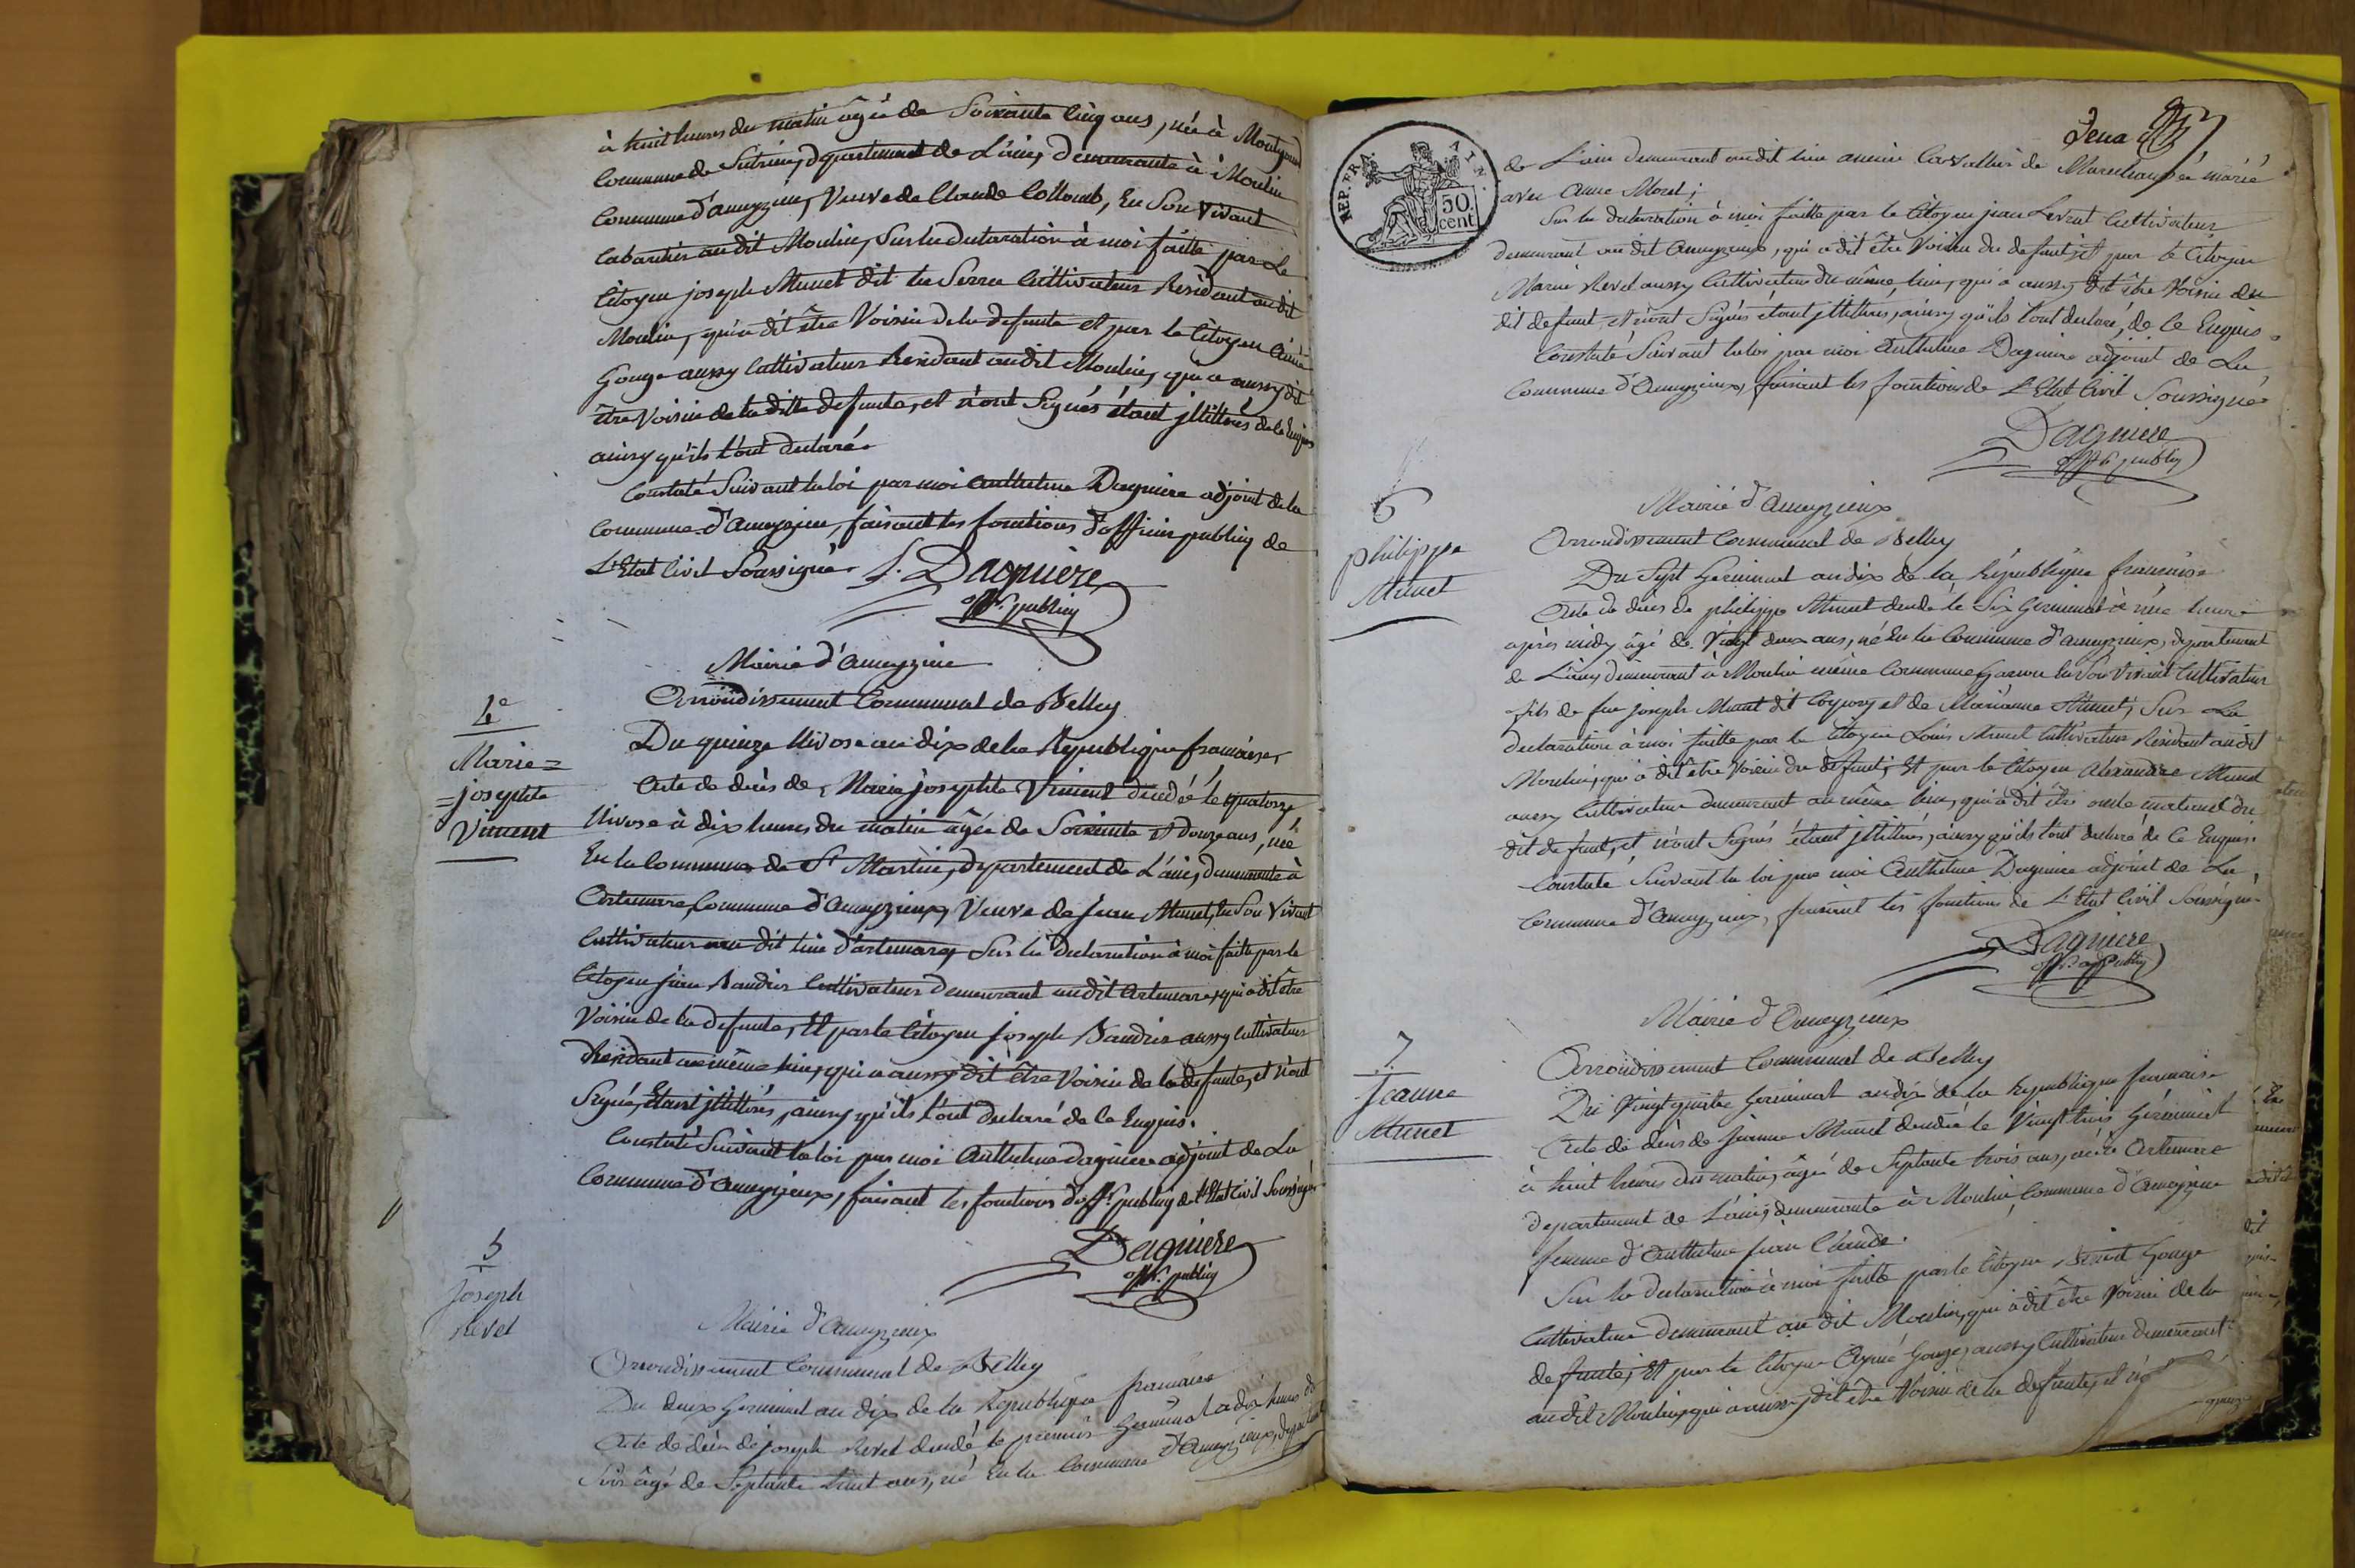 à huit heures du matin âgée de Soixante Cinq ans, née à
Commune de Sutrieu, département de L'ain, demeurante à Moulin
Commune d'ameyzieu, Veuve de Claude Collomb, En Son Vivant
Cabartier au dit Moulin, Sur la declaration à moi faitte par Le
Citoyen joseph Munet dit la Serra Cultivateur Residant au dit
Moulin, qui a dit être Voisin de la defunte et par le Citoyen Aimé
Gouge aussy Cultivateur Residant au dit Moulin, qui a aussy dit
être Voisin de la ditte defunte, et n'ont Signés étant jllittérés de Ce Enquis
ainsy qu'ils L'ont declaré.
Constaté Suivant la loi par moi Anthelme Dagniere adjoint de la
Commune d'ameyzieu, faisant les fonctions d'officier publiq de
L'Etat Civil Soussigné. Dagniere
offr. publiq
Mairie d'ameyzieu
4e
Arrondissement Communal de Belley
Marie=
=josephte
Vincent
Du quinze Nivose an dix de la Republique françaises
Acte de décès de, Marie josephte Vincent decedée le quatorze
Nivose à dix heures du matin âgée de Soixante et douze ans, née
En la Commune de St Martin, département de L'ain, demeurante à
Artemare, Commune d'ameyzieux, Veuve de jean Munet, En Son Vivant
Cultivateur au dit lieu d'artemare, Sur la declaration à moi faitte par le
Citoyen jean Baudin Cultivateur demeurant au dit Artemare, qui a dit être
Voisin de la defunte, Et par le Citoyen joseph Baudin aussy Cultivateur
Residant au même lieu, qui a aussy dit être Voisin de la defunte, et n'ont
Signé, Etant jllittérés, ainsy qu'ils L'ont declaré de Ce Enquis.
Constaté Suivant la loi par moi Anthelme Dagniere adjoint de La
Commune d'Ameyzieux, faisant les fonctions d'offr. publiq de L'Etat Civil Soussigné
Dagniere
offr. publiq
5
Joseph
Revet
Mairie d'Ameyzieux
Arrondissement Communal de Belley
Du deux Germinal an dix de la Republique française
Acte de décès de joseph Revet decedé le premier Germinal à dix heures du
Soir âgé de Septante huit ans, né En la Commune d'Ameyzieux, departement
REP. FRA.
AIN.
50
cent
de L'ain demeurant au dit lieu ancien Cavallier de Marechaussée marié
avec Anne Morel;
Sur la declaration à moi faitte par le Citoyen jean Levrat Cultivateur
demeurant au dit Ameyzieux, qui a dit être Voisin du defunt, et par le Citoyen
Marin Revet aussy Cultivateur du même lieu, qui a aussy dit être Voisin du
dit defunt, et n'ont Signés étant jllittérés, ainsy qu'ils L'ont declaré, de Ce Enquis.
Constaté Suivant la loi par moi Anthelme Dagniere adjoint de La
Commune d'Ameyzieux, faisant les fonctions de L'Etat Civil Soussigné
Dagniere
offr. publiq
6
philippe
Munet
Mairie d'Ameyzieux
Arrondissement Communal de Belley
Du Sept Germinal an dix de la Republique française
Acte de décès de philippe Munet decedé le Six Germinal à une heure
après midy âgé de Vingt deux ans, né En la Commune d'ameyzieux, departement
de L'ain, demeurant à Moulin même Commune Garçon En Son Vivant Cultivateur
fils de feu joseph Munet dit et de Marianne Munet, Sur La
declaration à moi faitte par le Citoyen Louis Munet Cultivateur Residant au dit
Moulin, qui a dit être Voisin du defunt, Et par le Citoyen Alexandre Munet
aussy Cultivateur demeurant au même lieu, qui a dit être oncle maternel du
dit defunt, et n'ont Signés étant jllittérés, ainsy qu'ils L'ont declaré de Ce Enquis.
Constaté Suivant la loi par moi Anthelme Dagniere adjoint de La
Commune d'Ameyzieux, faisant les fonctions de L'Etat Civil Soussigné
Dagniere
7
Jeanne
Munet
Mairie d'Ameyzieux
Arrondissement Communal de Belley
Du Vingt quatre Germinal an dix de la Republique française
Acte de décès de Jeanne Munet decedée le Vingt trois Germinal
à huit heures du matin, âgée de Septante trois ans, née à Artemare
departement de L'ain, demeurante à Moulin, Commune d'Ameyzieu
femme d'Anthelme jean Claude.
Sur la declaration à moi faitte par le Citoyen Benoit Gouge
Cultivateur demeurant au dit Moulin, qui a dit être Voisin de la
defunte, Et par le Citoyen Aymé Gouge, aussy Cultivateur demeurant
au dit Moulin, qui a aussy dit être Voisin de la defunte, et